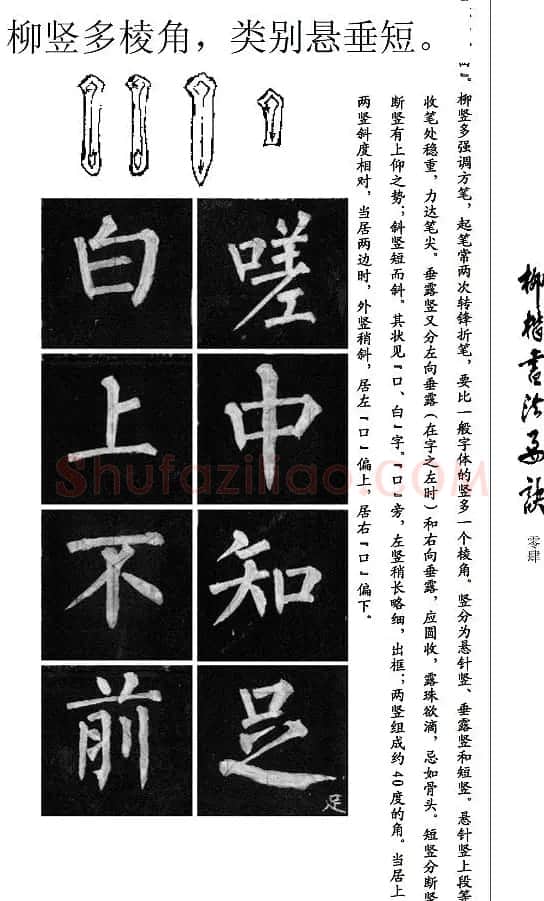 柳竖多棱角，类别悬垂短。
柳竖多强调方笔，起笔常两次转锋折笔，要比一般字体的竖多一个棱角。竖分为悬针竖、垂露竖和短竖。悬针竖上段等
收笔处稳重，力达笔尖。垂露竖又分左向垂露（在字之左时）和右向垂露，应圆收，露珠欲滴，忌如骨头。短竖分断竖
断竖有上仰之势；斜竖短而斜。其状见『口、白』字。『口』旁，左竖稍长略细，出框；两竖组成约40度的角。当居上
两竖斜度相对，当居两边时，外竖稍斜，居左『口』偏上，居右『口』偏下。
柳楷书法要诀
零肆
嗟
中
知
足
白
上
不
前
足
Shufaziliao.COM